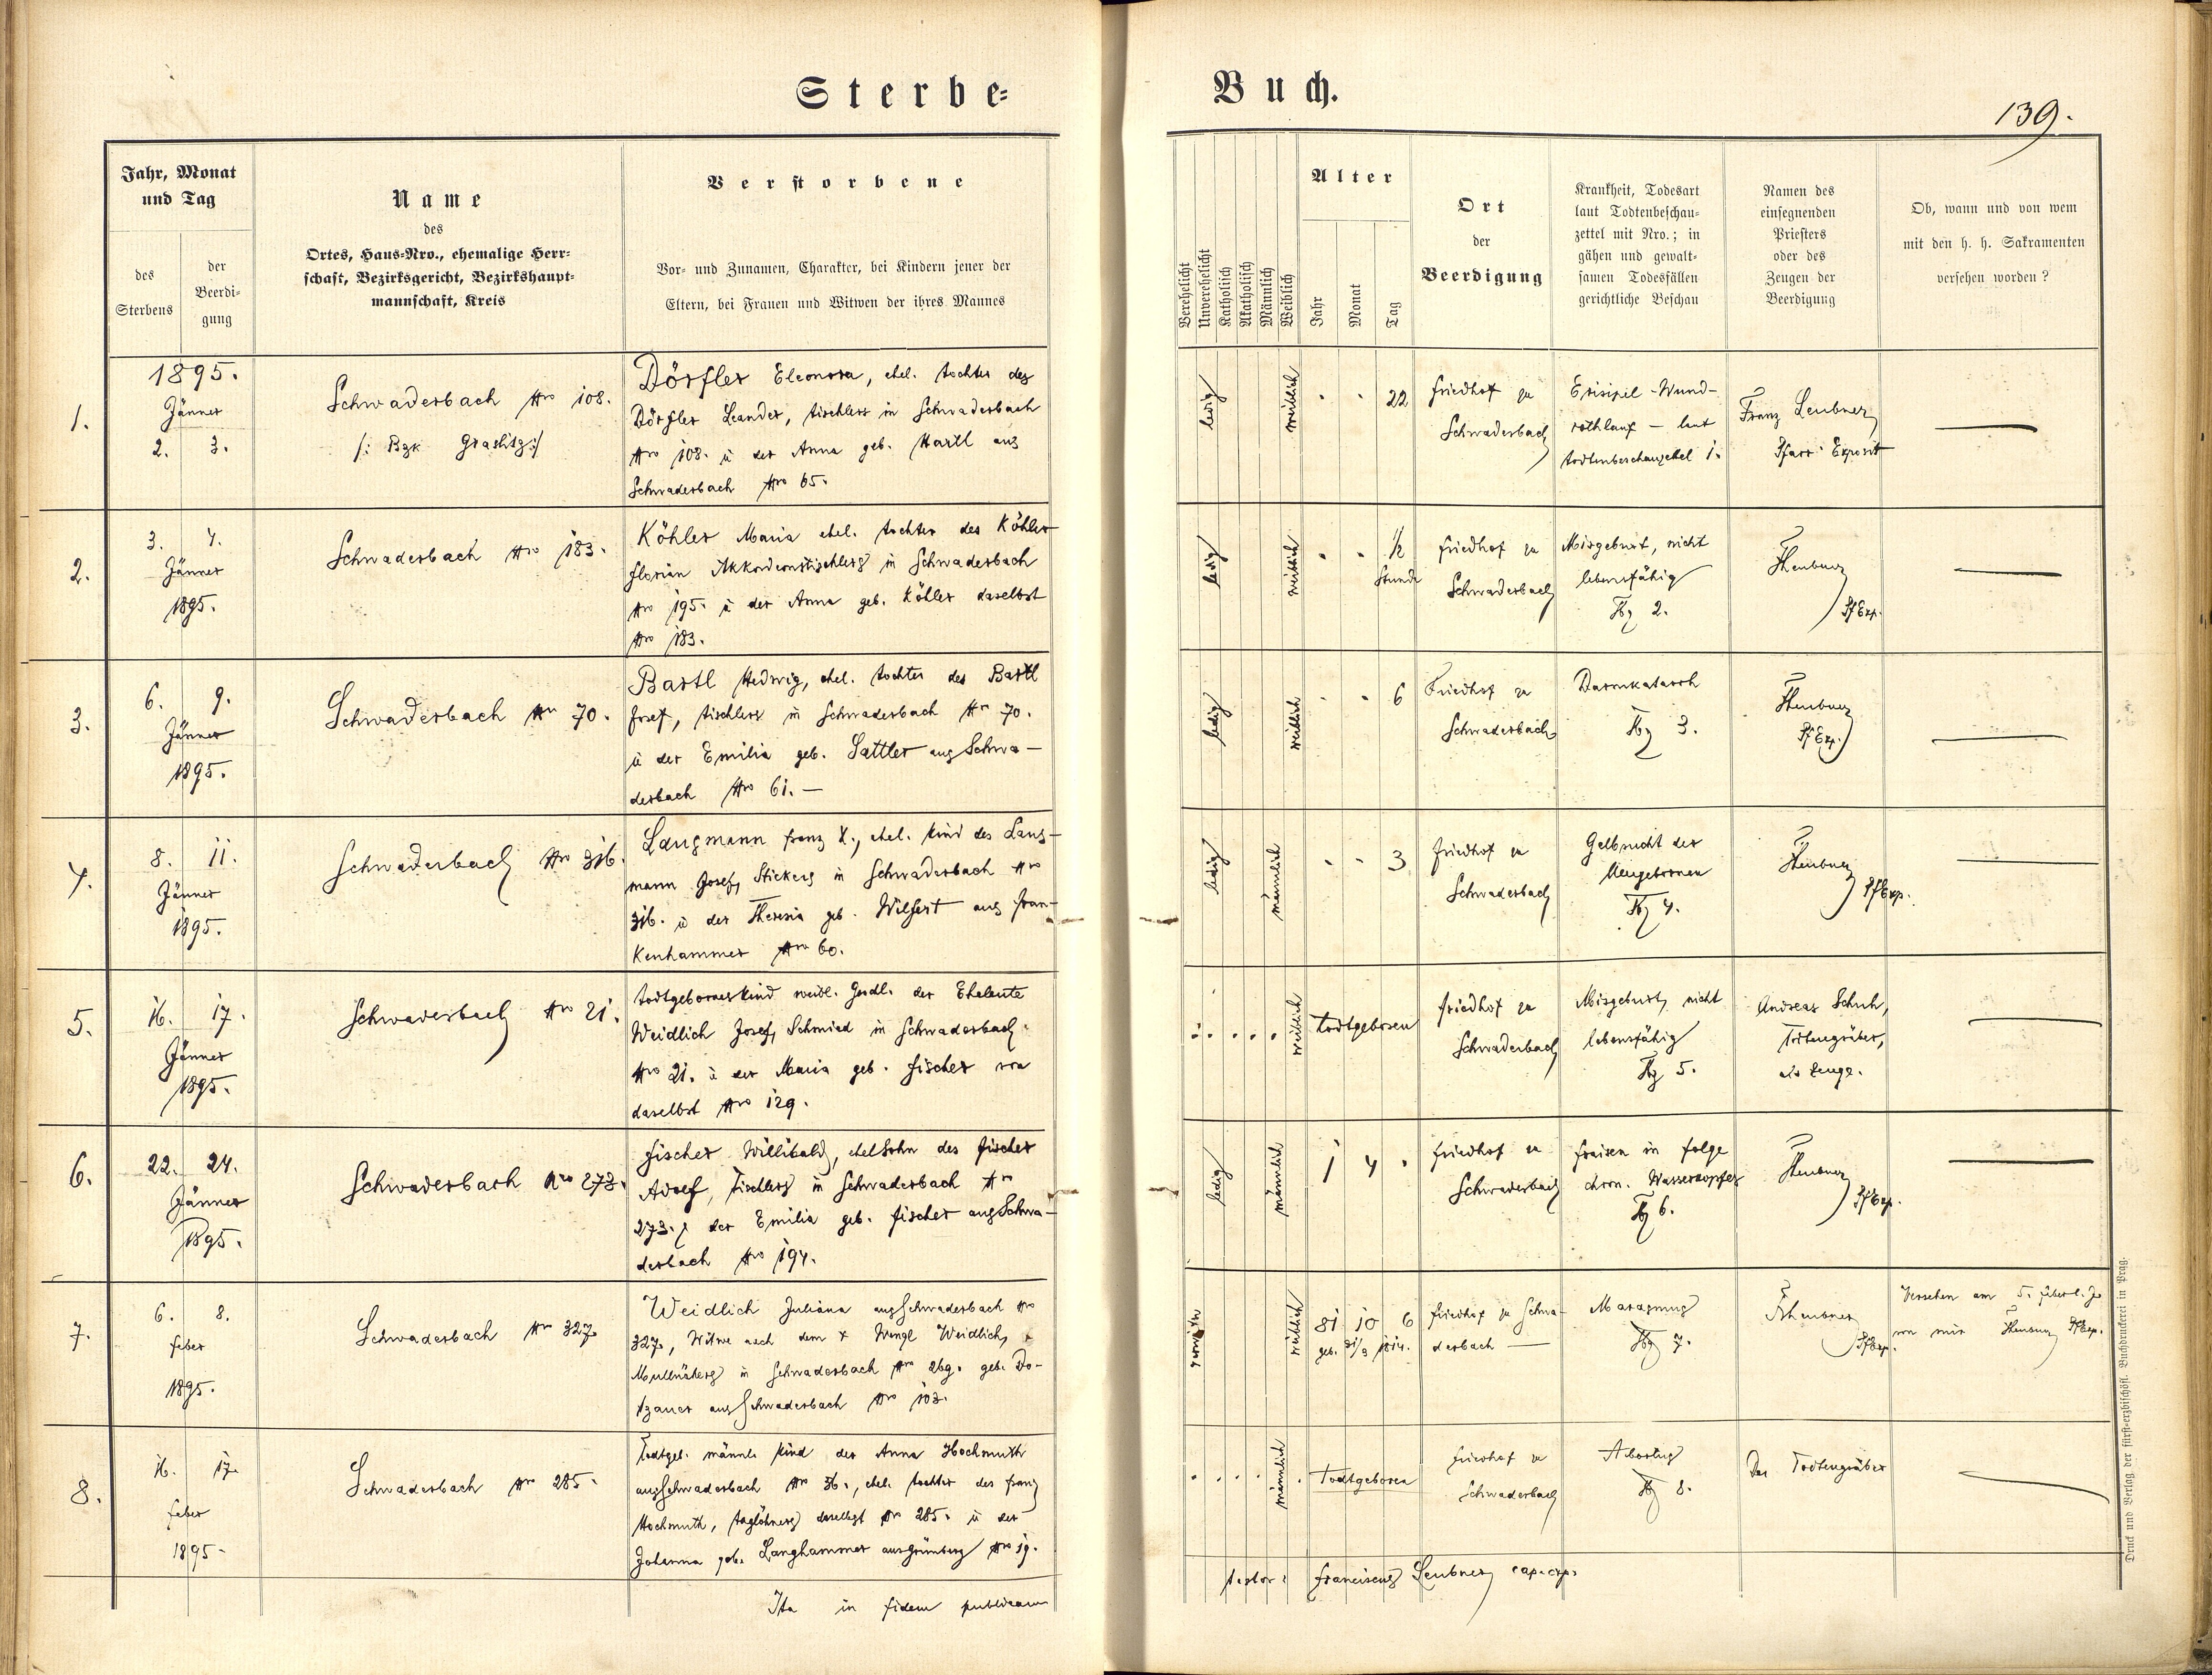 Sterbe-
Buch.
139.
Jahr, Monat
und Tag
des
Sterbens
der
Beerdi-
gung
Name
des
Ortes, Haus-Nro., ehemalige Herr-
schaft, Bezirksgericht, Bezirkshaupt-
mannschaft, Kreis
Verstorbene
Vor- und Zunamen, Charakter, bei Kindern jener der
Eltern, bei Frauen und Witwen der ihres Mannes
Verehelicht
Unverehelicht
Katholisch
Akatholisch
Männlich
Weiblich
Alter
Jahr
Monat
Tag
Ort
der
Beerdigung
Krankheit, Todesart
laut Todtenbeschau-
zettel mit Nro.; in
gähen und gewalt-
samen Todesfällen
gerichtliche Beschau
Namen des
einsegnenden
Priesters
oder des
Zeugen der
Beerdigung
Ob, wann und von wem
mit den h. h. Sakramenten
versehen worden?
1.
1895.
Jänner
2. 3.
Schwaderbach Nro 108.
/: Bzk Graslitz :/
Dörfler Eleonora, ehel. Tochter des
Dörfler Leander, Tischlers in Schwaderbach
Nro 108. u der Anna geb. Hartl aus
Schwaderbach Nro 65.
ledig
weiblich
22
Friedhof zu
Schwaderbach
Erisipel - Wund-
rothlauf — laut
Todtenbeschauzettel 1.
Franz Leubner
Pfarr Exposit
2.
3. 4.
Jänner
1895.
Schwaderbach Nro 183.
Köhler Maria ehel. Tochter des Köhler
Florian Akkordeontischlers in Schwaderbach
Nro 195. u der Anna geb. Köhler daselbst
Nro 183.
ledig
weiblich
1/2
Stunde
Friedhof zu
Schwaderbach
Misgeburt, nicht
lebensfähig
Tbz 2.
FLeubner
PfExp.
3.
6. 9.
Jänner
1895.
Schwaderbach Nro 70.
Bartl Hedwig, ehel. Tochter des Bartl
Josef, Tischlers in Schwaderbach Nro 70.
u der Emilia geb. Sattler aus Schwa-
derbach Nro 61. —
ledig
weiblich
6
Friedhof zu
Schwaderbach
Darmkatarrh
Tbz 3.
FLeubner
PfExp.
4.
8. 11.
Jänner
1895.
Schwaderbach Nro 316.
Langmann Franz X., ehel. Kind des Lang-
mann Josef, Stickers in Schwaderbach Nro
316. u der Theresia geb. Wilfert aus Fran-
kenhammer Nro 60.
ledig
männlich
3
Friedhof zu
Schwaderbach
Gelbsucht der
Neugebornen
Tbz 4.
FLeubner
PfExp.
5.
16. 17.
Jänner
1895.
Schwaderbach Nro 21.
Todtgebornes Kind weibl. Gschl. der Eheleute
Weidlich Josef, Schmied in Schwaderbach
Nro 21. u der Maria geb. Fischer von
daselbst Nro 129.
weiblich
Todtgeboren
Friedhof zu
Schwaderbach
Misgeburt, nicht
lebensfähig
Tbz 5.
Andreas Schuh,
Todtengräber,
als Zeuge.
6.
22. 24.
Jänner
1895.
Schwaderbach Nro 273.
Fischer Willibald, ehel Sohn des Fischer
Adolf, Tischlers in Schwaderbach Nro
273. u der Emilia geb. Fischer aus Schwa-
derbach Nro 194.
ledig
männlich
1 4
Friedhof zu
Schwaderbach
Fraisen in Folge
chron. Wasserkopfes
Tbz 6.
FLeubner
PfExp.
7.
6. 8.
Feber
1895.
Schwaderbach Nro 327
Weidlich Juliana aus Schwaderbach Nro
327, Witwe nach dem + Wenzl Weidlich,
in Schwaderbach Nro 269. geb. Do-
tzauer aus Schwaderbach Nro 103.
verwitw
weiblich
81 10 6
geb. 31/3 1814.
Friedhof zu Schwa-
derbach —
Marasmus
Tbz 7.
FLeubner
PfExp.
Versehen am 5. Feber l. J.
von mir FLeubner PfExp.
8.
16. 17.
Feber
1895.
Schwaderbach Nro 285.
Todtgeb. männl. Kind der Anna Hochmuth
aus Schwaderbach Nro 36., ehel. Tochter des Franz
Hochmuth, Taglöhners daselbst Nro 285. u der
Johanna geb. Langhammer aus Grünberg Nro 19.
männlich
Todtgeboren
Friedhof zu
Schwaderbach
Abortus
Tbz 8.
Der Todtengräber
Ita in fidem publicam
testor: Franciscus Leubner cap. exp.
Druck und Verlag der fürst-erzbischöfl. Buchdruckerei in Prag.